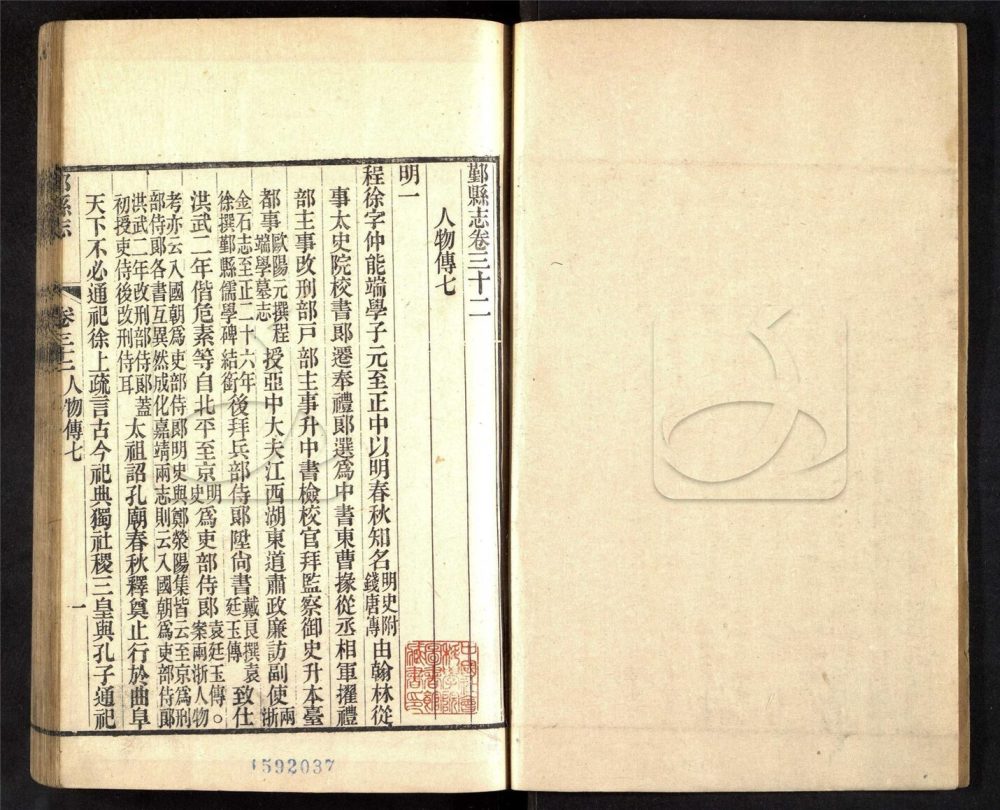 鄞縣志卷三十二
人物傳七
明一
程徐字仲能端學子元至正中以明春秋知名明史附錢唐傳由翰林從
事太史院校書郎遷奉禮郎選爲中書東曹掾從丞相軍擢禮
部主事改刑部戸部主事升中書檢校官拜監察御史升本臺
都事歐陽元撰程端學墓志授亞中大夫江西湖東道肅政廉訪副使兩浙
金石志至正二十六年徐撰鄞縣儒學碑結銜後拜兵部侍郎陞尙書戴良撰袁廷玉傳致仕
洪武二年偕危素等自北平至京明史爲吏部侍郎袁廷玉傳○案兩浙人物
考亦云入國朝爲吏部侍郎明史與鄭滎陽集皆云至京爲刑部侍郎各書互異然成化嘉靖兩志則云入國朝爲吏部侍郎
洪武二年改刑部侍郎蓋初授吏侍後改刑侍耳太祖詔孔廟春秋釋奠止行於曲阜
天下不必通祀徐上疏言古今祀典獨社稷三皇與孔子通祀
鄞縣志
卷三十二
人物傳七
一
1592037